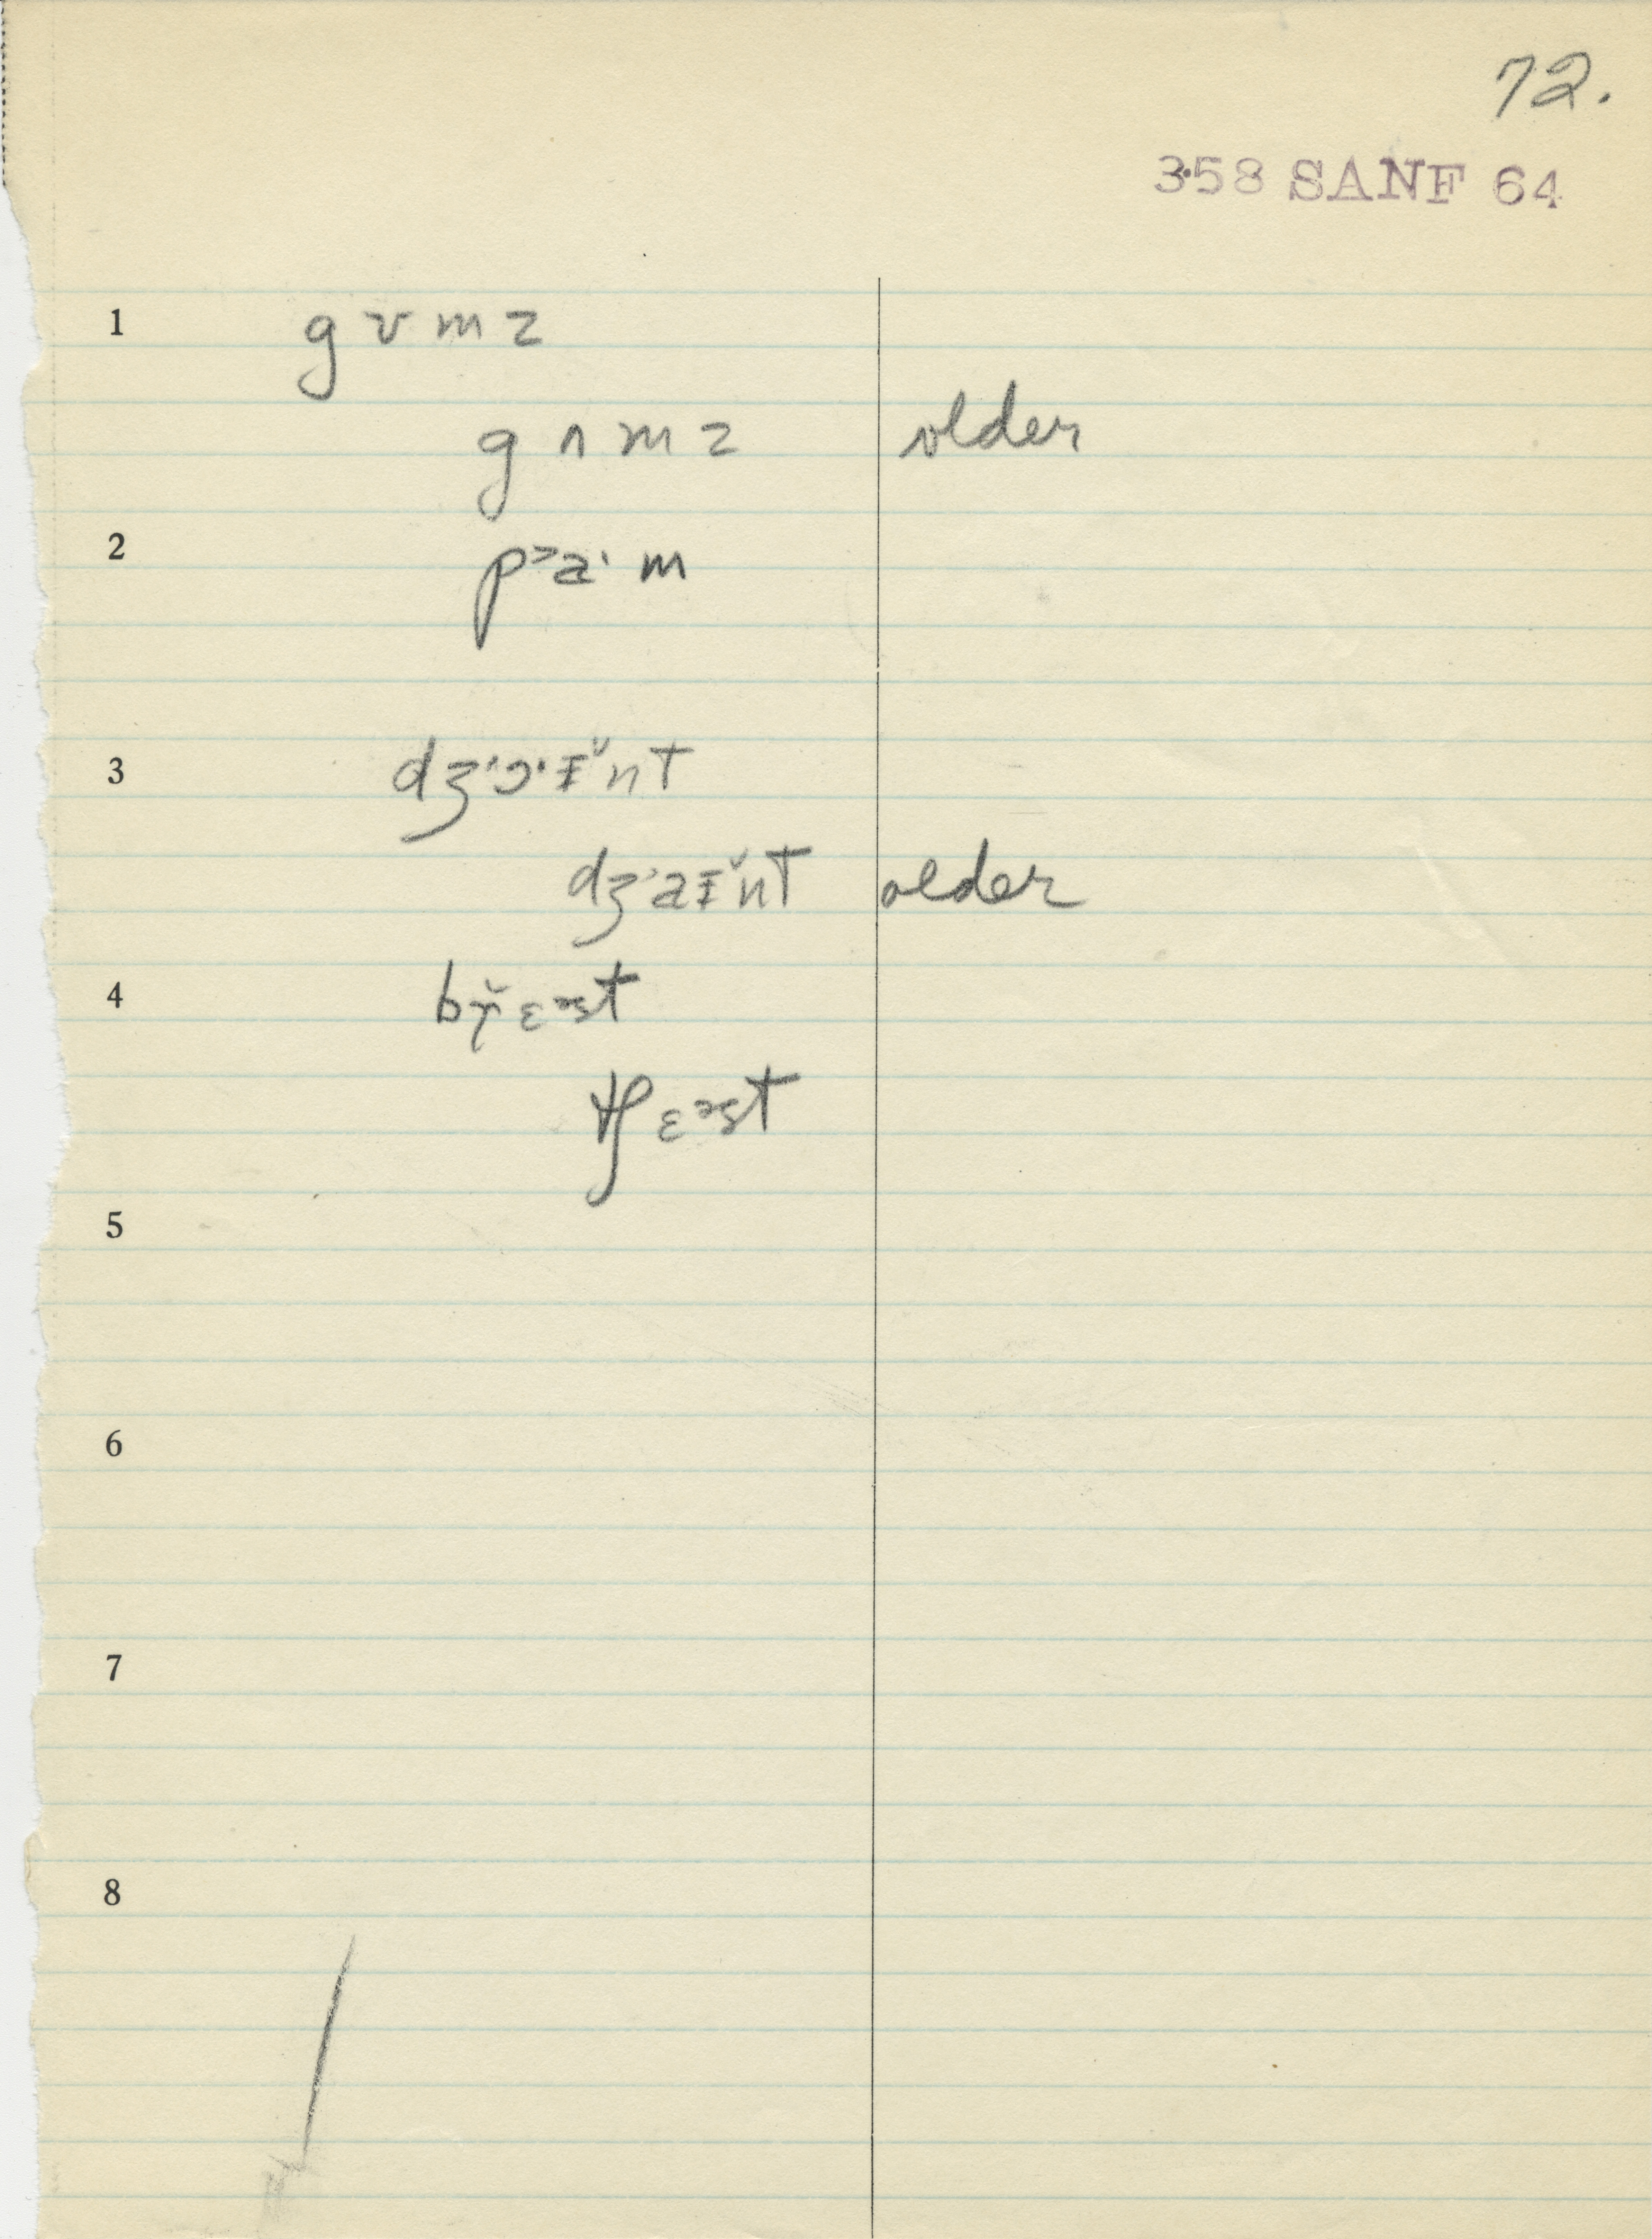 72.
358 SANF 64
1 g ʊ m z
g ʌ m z older
2 pᵊa· m
3 dʒ'ɔ·ɪ̆nt
dʒ'aɪ̆nt older
4 bɤ̆ɛᵊst
tʃɛᵊst
5
6
7
8